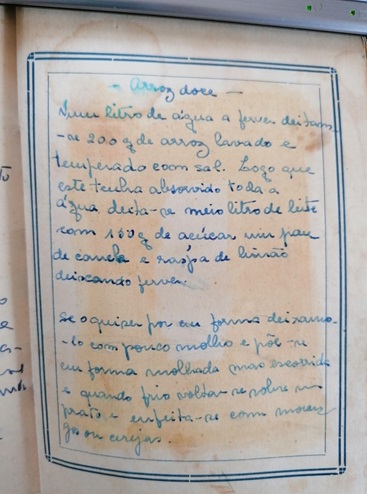 - Arroz doce -
Num litro de água a ferver deitam-
-se 200 g de arroz lavado e
temperado com sal. Logo que
este tenha absorvido toda a
água, deita-se meio litro de leite
com 150 g de açúcar um pau
de canela e raspa de limão
deixando ferver.
Se o quiser por em forma deixamo-
-lo com pouco molho e põe-se
em forma molhada mas escorrida
e quando frio volta-se sobre um
prato e enfeita-se com moran-
gos ou cerejas.